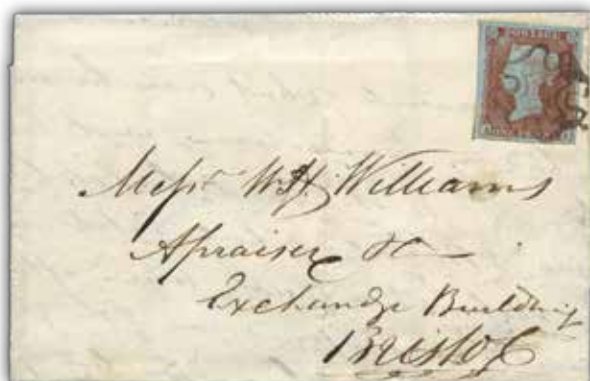 POSTAGE
Messrs W. H. Williams
Apraiser &c
Exchange Building
Bristol